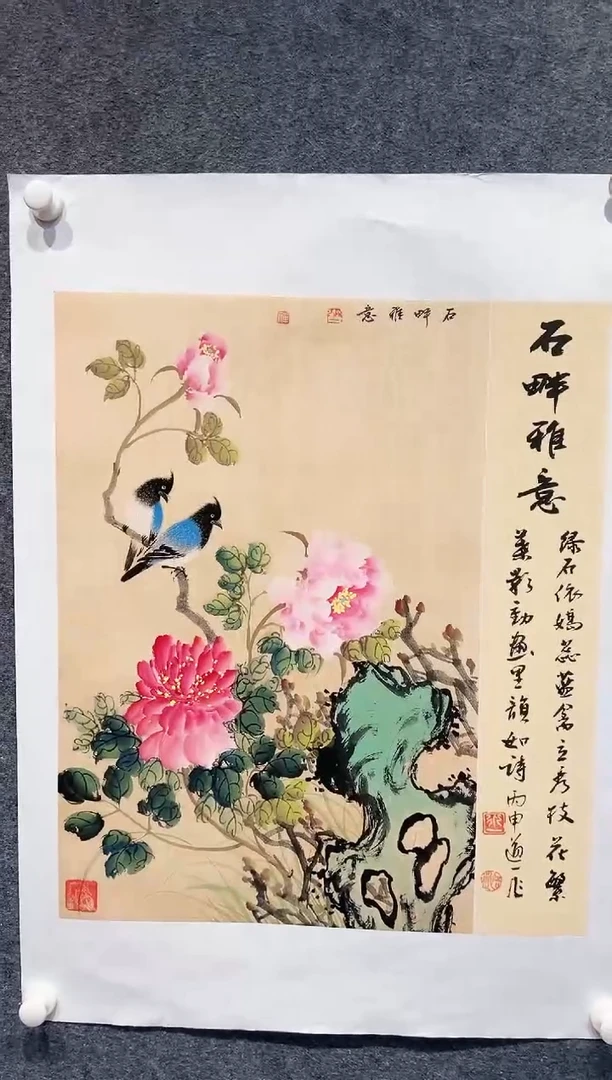 石畔雅意
石畔雅意
绿石依嫣蕊蓝禽立秀枝花繁
叶影动画里韵如诗丙申道一作